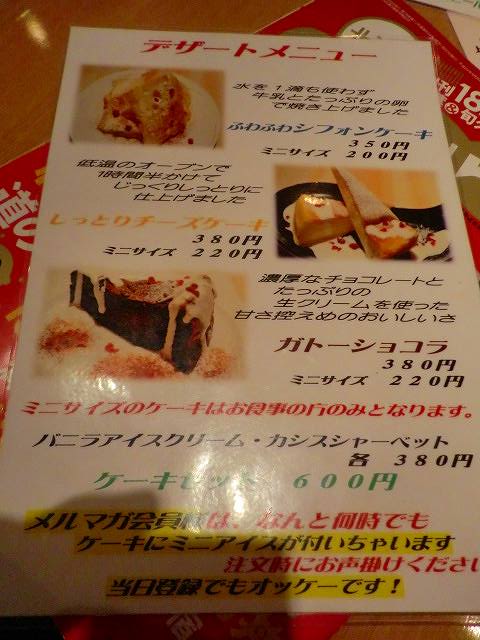 デザートメニュー
水を1滴も使わず
牛乳とたっぷりの卵
で焼き上げました
ふわふわシフォンケーキ
350円
ミニサイズ 200円
低温のオーブンで
1時間半かけて
じっくりしっとりに
仕上げました
しっとりチーズケーキ
380円
ミニサイズ 220円
濃厚なチョコレートと
たっぷりの
生クリームを使った
甘さ控えめのおいしいさ
ガトーショコラ
380円
ミニサイズ 220円
ミニサイズのケーキはお食事の方のみとなります。
バニラアイスクリーム・カシスシャーベット
各 380円
ケーキセット 600円
メルマガ会員様は、なんと何時でも
ケーキにミニアイスが付いちゃいます
注文時にお声掛けください
当日登録でもオッケーです!